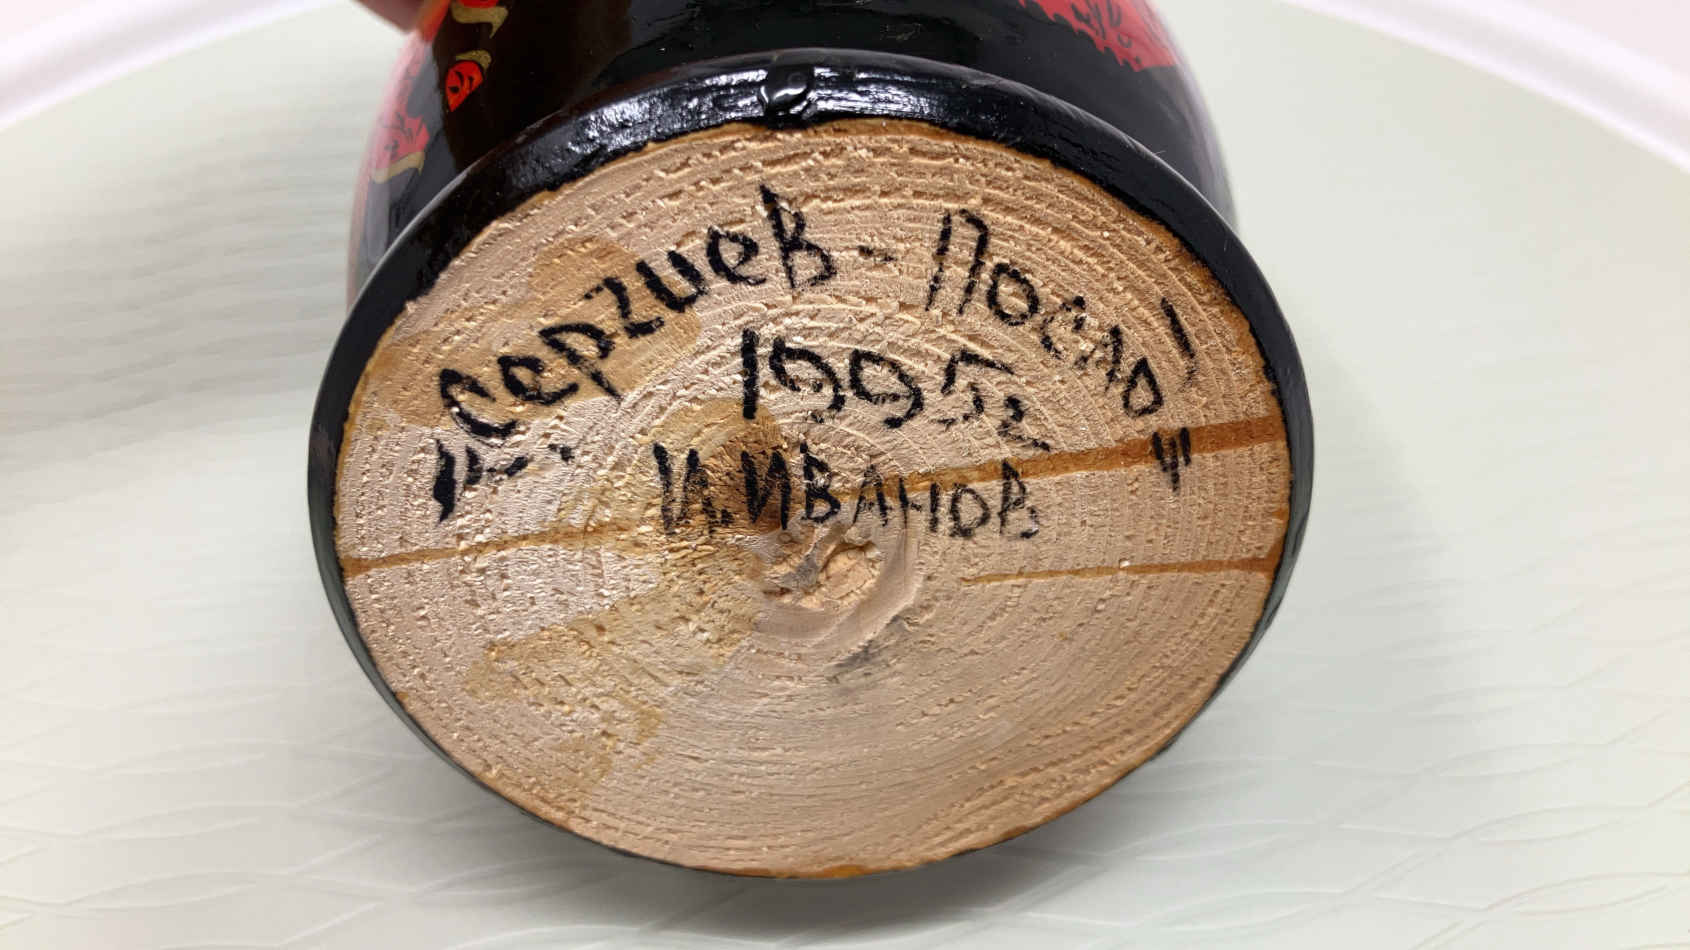 "Сергиев-Посад"
1995г
И.ИВАНОВ